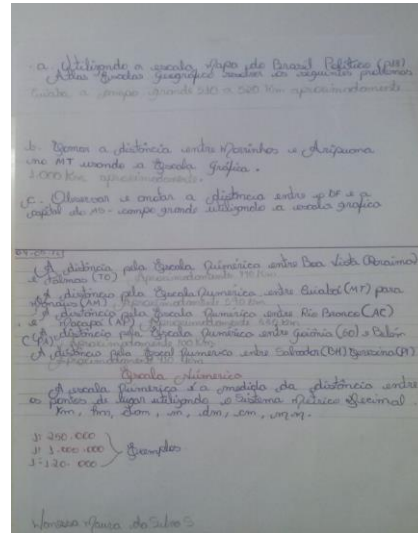 a. Utilizando a escala Mapa do Brasil Político
Atlas Escolar geográfico resolver os seguintes problemas
Cuiabá a campo grande a 560 Km aproximadamente

b. a distância entre Morrinhos e Aripuana
no MT usando a Escala Gráfica.
1.000 km aproximadamente.

c. Observar e anotar a distância entre o DF e a
capital do MS - campo grande utilizando a escala gráfica

A distância pela Escala Numérica entre Boa Vista (Roraima)
e Palmas (TO). Aproximadamente Km
A distância pela Escala Numérica entre Cuiabá (MT) para
Manaus (AM). Aproximadamente Km
A distância pela Escala Numérica entre Rio Branco (AC)
e Macapá (AP). Aproximadamente Km
A distância pela Escala Numérica entre Goiânia (GO) e Belém
(PA) Aproximadamente Km
A distância pela Escal Numerica entre Salvador (BH) Terezina (PI)
Escala Númerica
A escala Numerica é a medida da distância entre
os pontos de lugar utilizando o Sistema Métrico Decimal.
Km, hm, Dam, m, dm, cm, mm.
1: 250.000
1: 1.000.000 Exemplos
1: 120.000